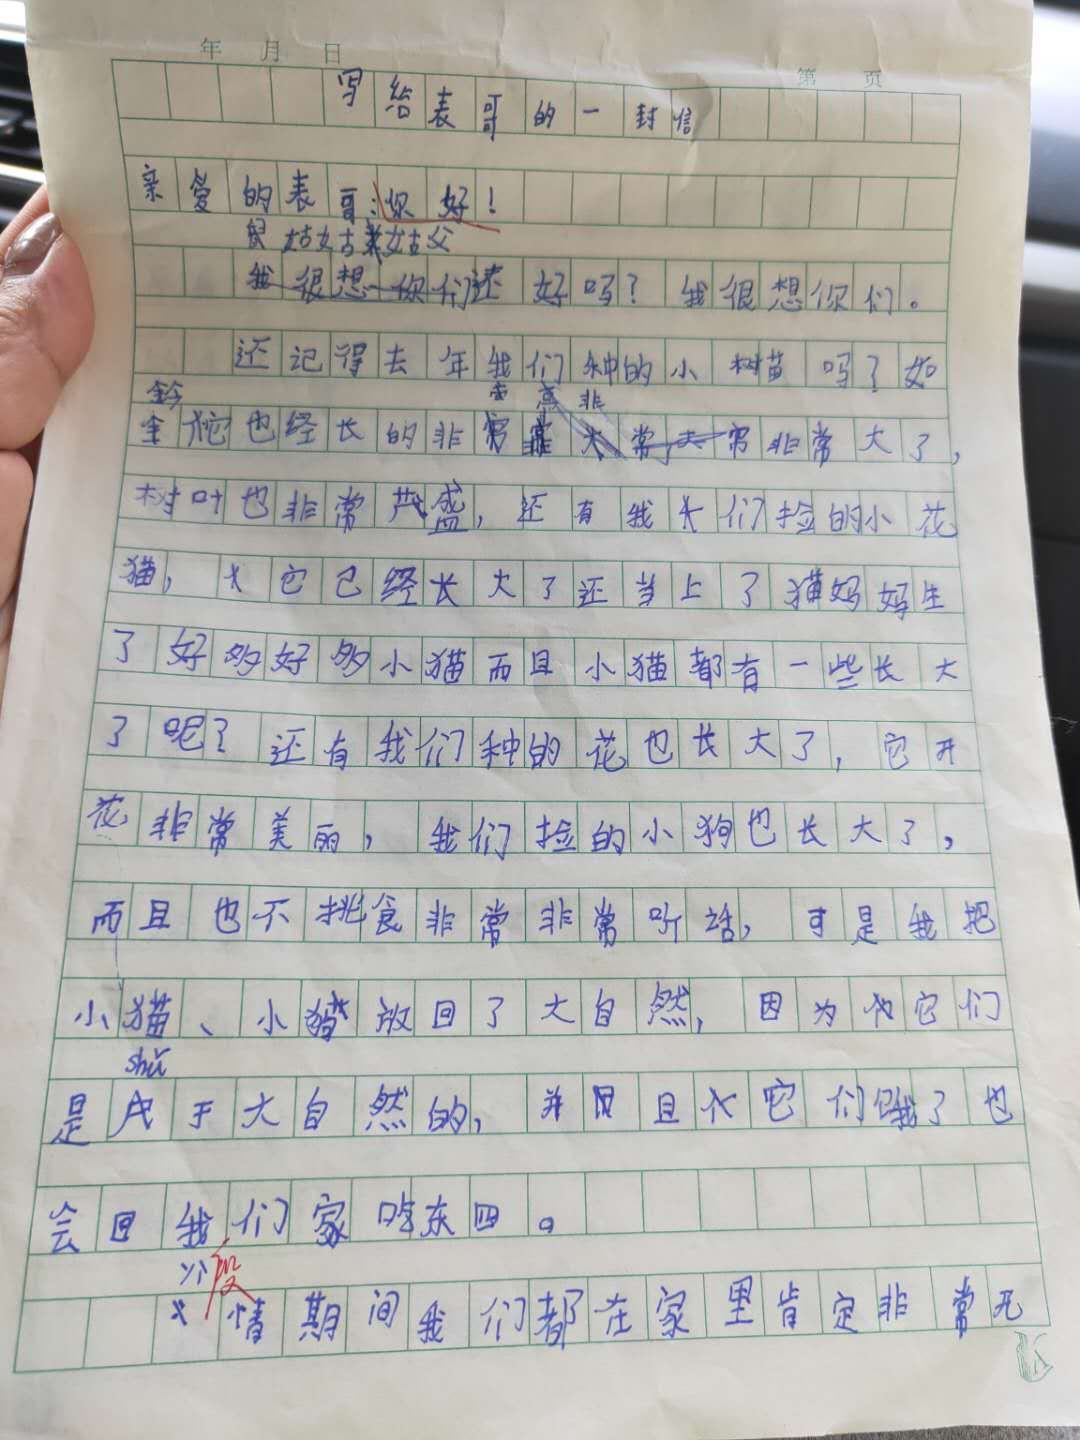 年 月 日
第 页
写给表哥的一封信
亲爱的表哥:你好!
姑姑姑父
我很想你们还好吗?我很想你们。
还记得去年我们种的小树苗吗?如
今它也经长的非常大常非常大了,
树叶也非常茂盛,还有我们捡的小花
猫,它已经长大了还当上了猫妈妈生
了好多好多小猫而且小猫都有一些长大
了呢?还有我们种的花也长大了,它开
花非常美丽,我们捡的小狗也长大了,
而且也不挑食非常非常听话,可是我把
小猫、小猪放回了大自然,因为它们
shǔ
是于大自然的,并且它们饿了也
会回我们家吃东四。
段
情期间我们都在家里肯定非常无